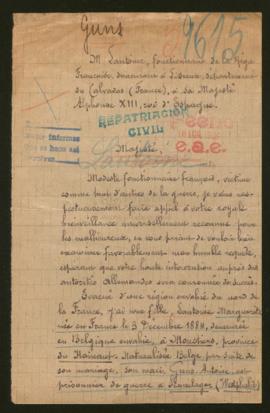 Guns
9615
M. Lantoine, fonctionnaire de la Régie
Française, demeurant à département
du Calvados (France), à Sa Majesté
Alphonse XIII, roi d'Espagne.
REPATRIACION
CIVIL
e.a.e.
Majesté,
Lantoine
Modeste fonctionnaire français, victime
comme tant d'autres de la guerre, je viens res-
pectueusement faire appel à votre royale
bienveillance universellement reconnue pour
les malheureux, en vous priant de vouloir bien
examiner favorablement mon humble requête,
espérant que votre haute intervention auprès des
autorités Allemandes sera couronnée de succès.
Evacué d'une région envahie du nord de
la France, j'ai une fille, Lantoine Marguerite
née en France le 3 Décembre 1884, demeurée
en Belgique envahie, à province
du Hainaut. Naturalisée Belge par suite de
son mariage, son mari, Guns Antoine, est
prisonnier de guerre à (Westphalie)